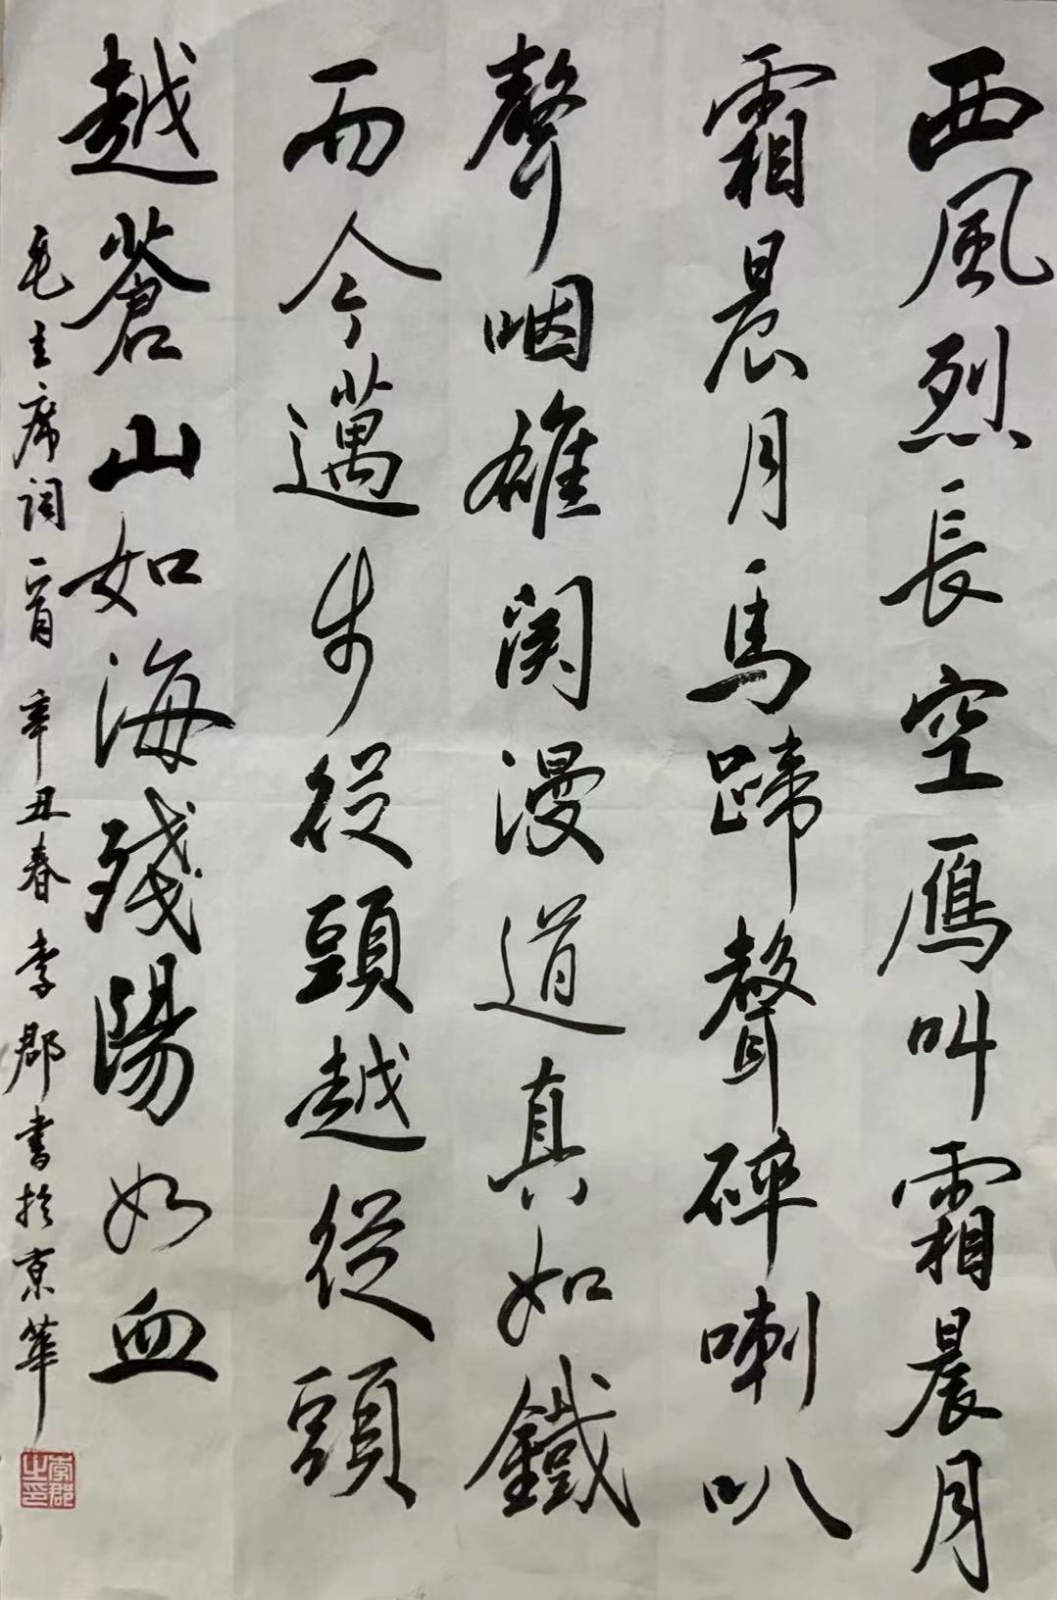 西風烈長空雁叫霜晨月
霜晨月馬蹄聲碎喇叭
聲咽雄関漫道真如鐵
而今邁步從頭越從頭
越蒼山如海殘陽如血
毛主席詞一首 辛丑春李郡書於京華
李郡之印